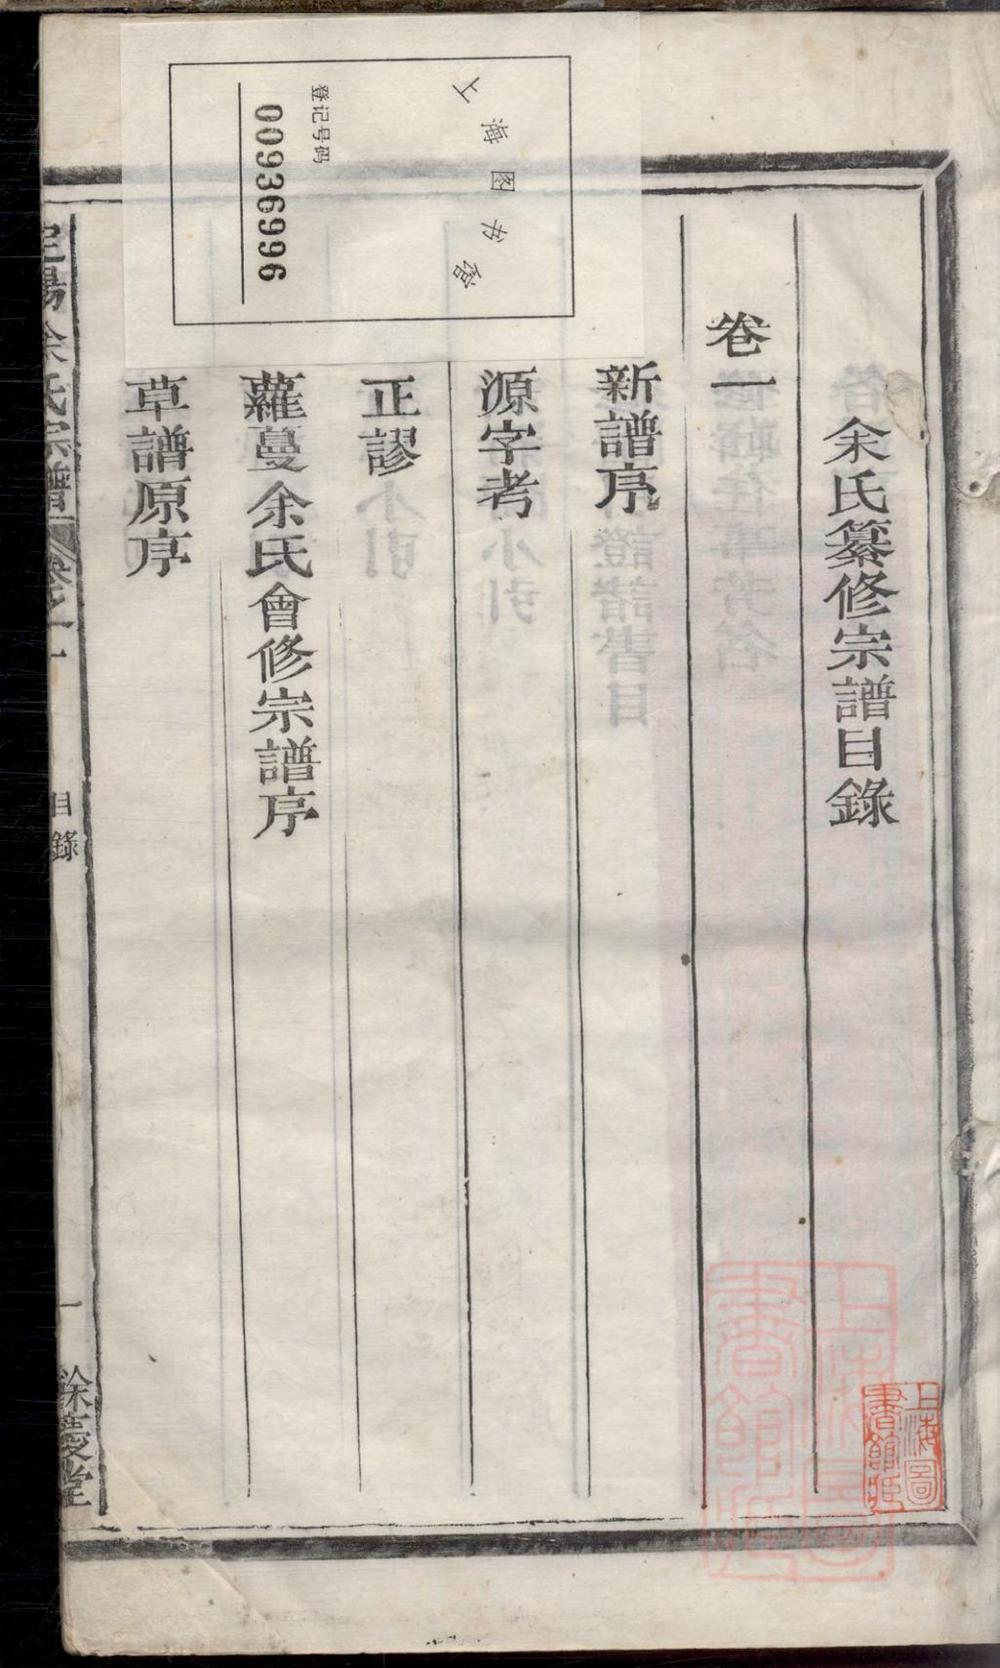 上海图书馆
登记号码
00936996
余氏纂修宗譜目錄
卷一
新譜序
源字考
正謬
蘿蔓余氏會修宗譜序
草譜原序
陽余氏宗譜
卷之一
目錄
一
餘慶堂
上海圖
書館